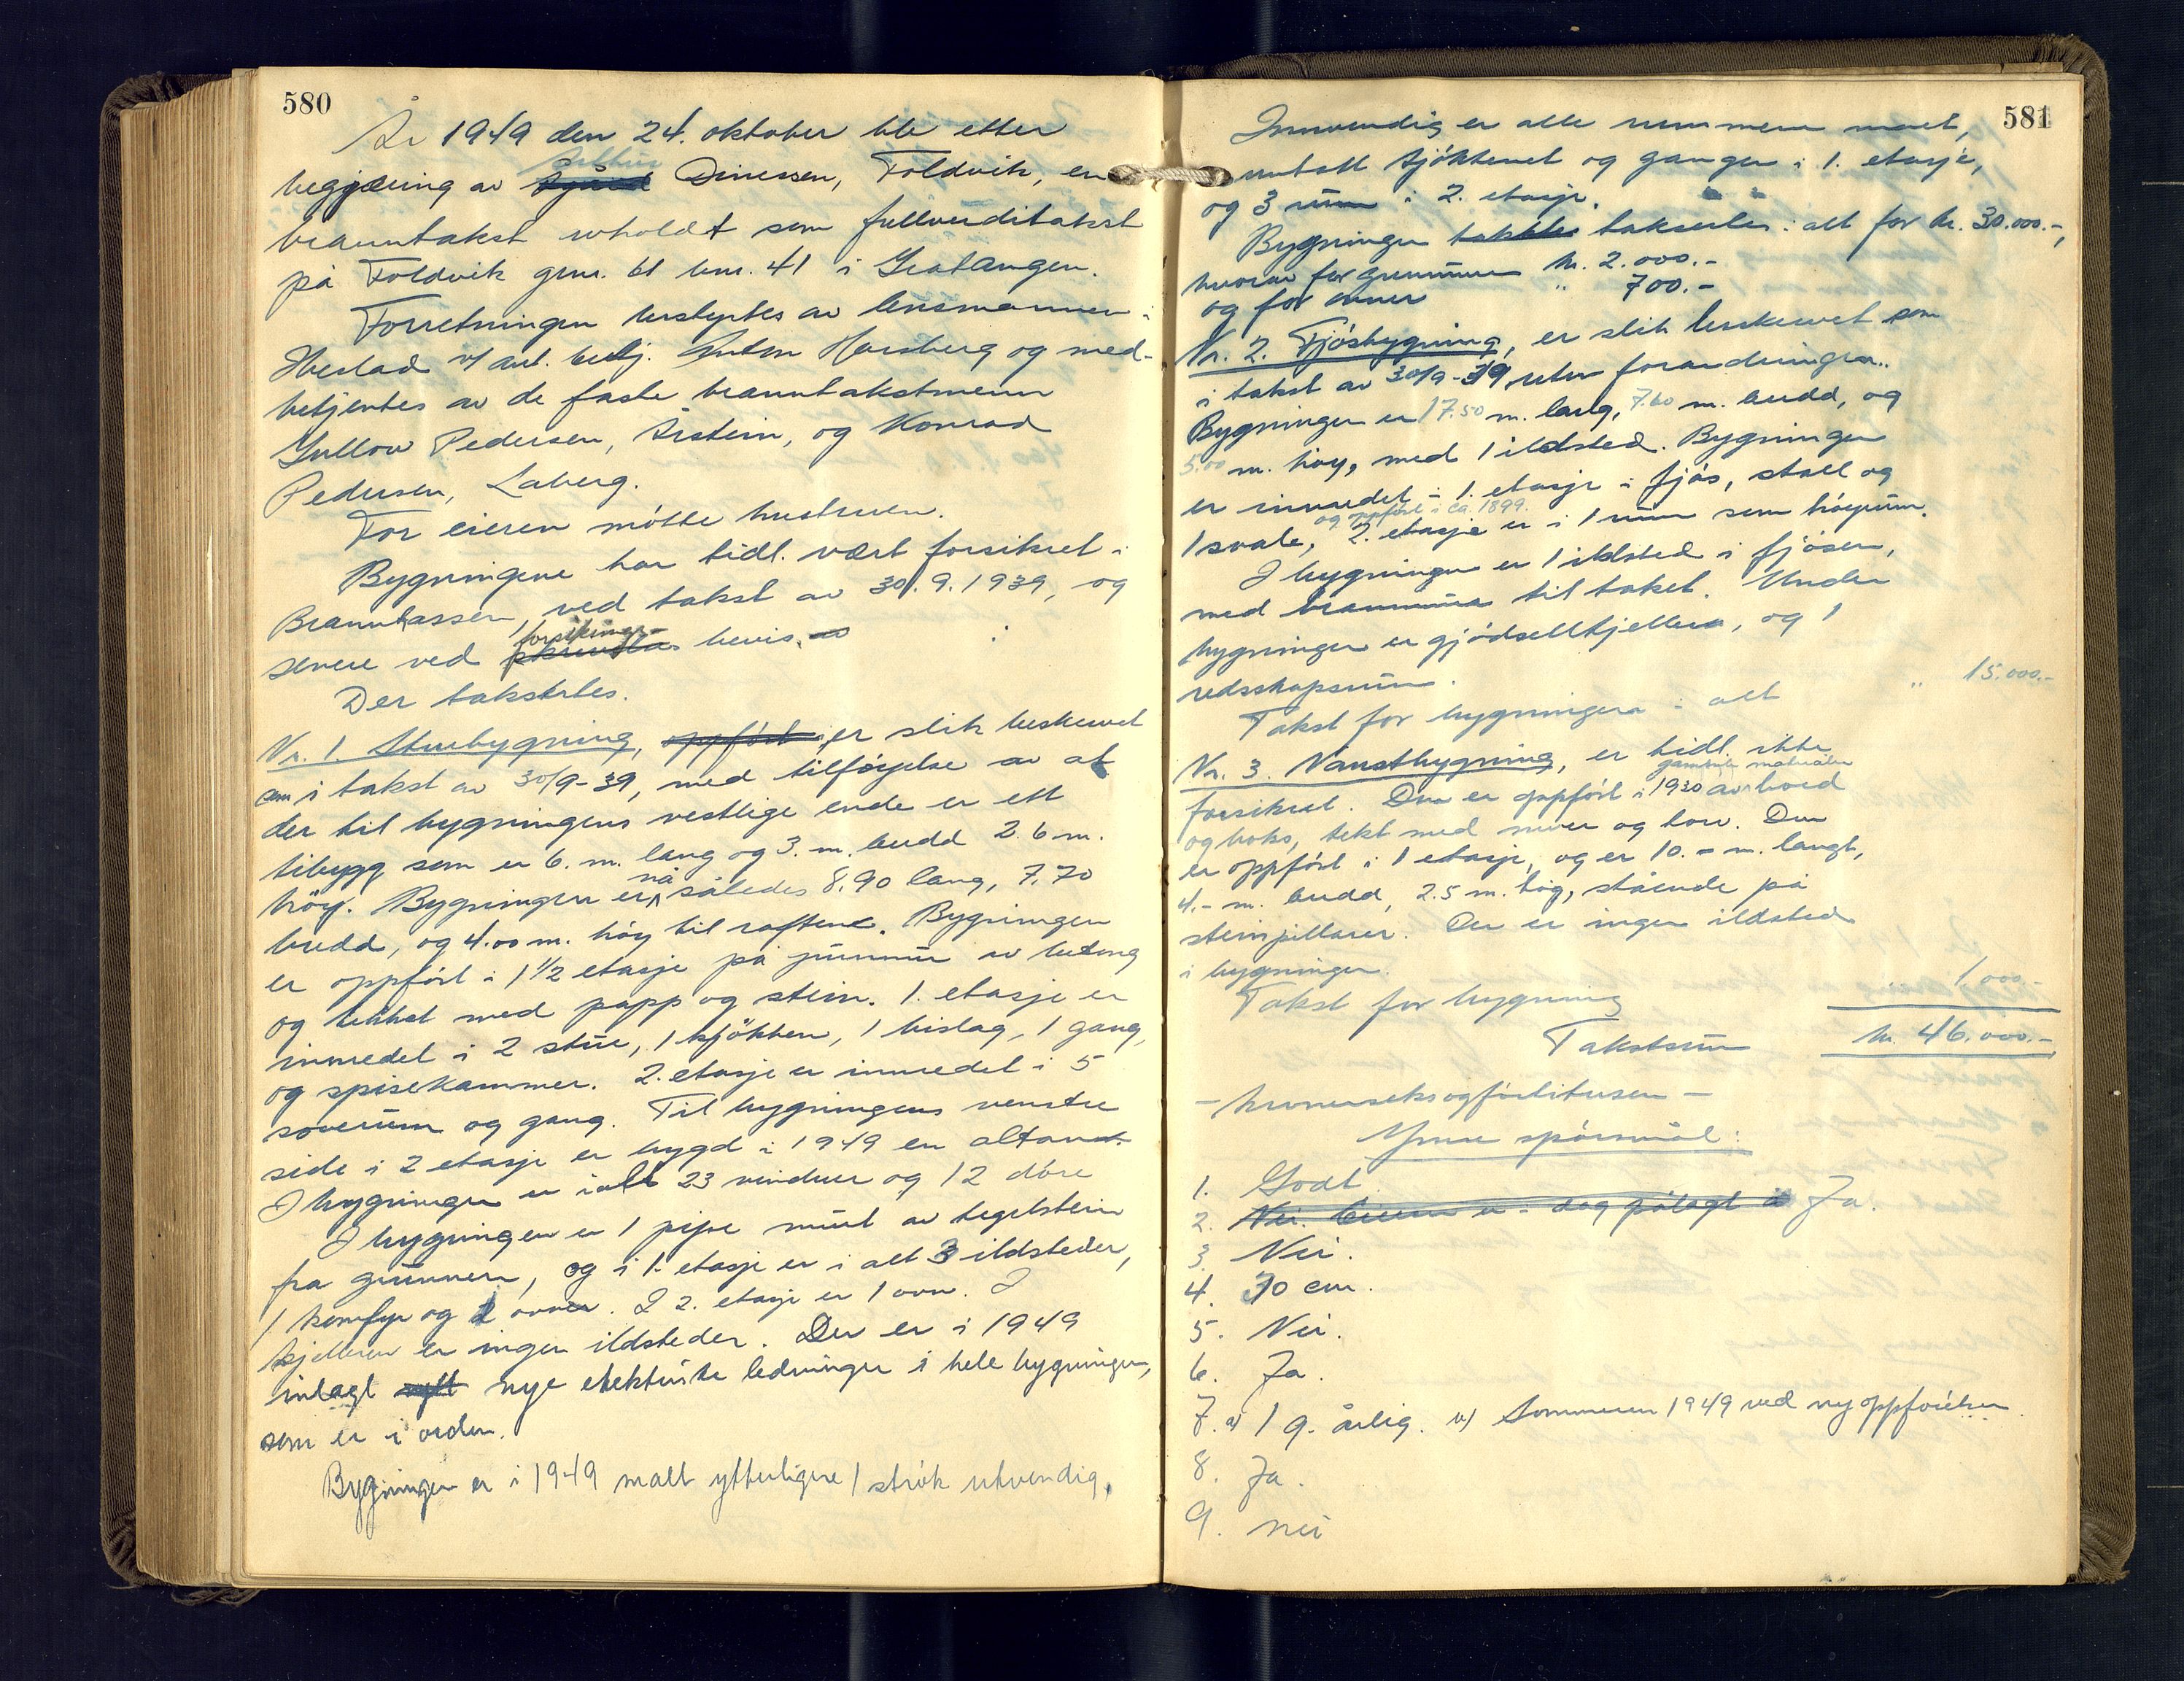 580
År 1949 den 24. oktober ble etter
Arthur
begjæring av Dinessen, Foldvik, en
branntakst avholdt som fullverditakst
på Foldvik gnr. 61 bnr. 41 i Gratangen.
Forretningen bestyrtes av lensmannen i
Ibestad v/ aut. betj. Anton Harsberg og med-
betjentes av de faste branntakstmenn
Gullow Pedersen, Årstein, og Konrad
Pedersen, Laberg.
For eieren møtte hustruen.
Bygningene har tidl. vært forsikret i
Brannkassen, ved takst av 30.9.1939, og
forsikrings-
senere ved bevis.
Der takstertes.
Nr. 1. Stuebygning, oppført i er slik beskrevet
som i takst av 30/9-39, med tilføyelse av at
der til bygningens vestlige ende er ett
tibygg som er 6. m. lang og 3. m. bredd 2.6 m.
nå
høy. Bygningen er således 8.90 lang, 7.70
bredd, og 4.00 m. høy til raftene. Bygningen
er oppført i 1 1/2 etasje på grunnmur av betong
og tekket med papp og stein. 1. etasje er
innredet i 2 stuer, 1 kjøkken, 1 bislag, 1 gang,
og spisekammer. 2. etasje er innredet i 5
soverum og gang. Til bygningens venstre
side i 2 etasje er bygd i 1949 en altan
I bygningen er ialt 23 vinduer og 12 døre
I bygningen er 1 pipe murt av teglstein
fra grunnen, og i 1. etasje er i alt 3 ildsteder,
1 komfyr og 2 ovner. I 2. etasje er 1 ovn. I
kjelleren er ingen ildsteder. Der er i 1949
inlagt nytt nye elektriske ledninger i hele bygningen,
som er i orden.
Bygningen er i 1949 malt ytterligere 1 strøk utvendig.
581
Innvendig er alle rummene malt,
untatt kjøkkenet og gangen i 1. etasje,
og 3 rum i 2. etasje.
Bygningen takseres i alt for kr. 30.000.-,
hvorav for grunnmuren kr. 2.000.-
og for ovner " 700.-
Nr. 2. Fjøsbygning, er slik beskrevet som
i takst av 30/9-39, uten forandringer.
Bygningen er 17.50 m. lang, 7.60 m. bredd, og
5.00 m. høy, med 1 ildsted. Bygningen
er innredet i 1. etasje i fjøs, stall og
og oppført i ca. 1899.
1 svale, 2. etasje er i 1 rum som høyrum.
I bygningen er 1 ildsted i fjøsen,
med brannmur til taket. Under
bygningen er gjødselkjeller, og 1
redsskapsrum.
Takst for bygningen i alt " 15.000.-
Nr. 3. Naustbygning, er tidl. ikke
gamle materialer
forsikret. Den er oppført i 1930 av bord
og boks, tekt med never og torv. Den
er oppført i 1 etasje, og er 10.- m. langt,
4.- m. bredd, 2.5 m. høg, stående på
steinpillarer. Der er ingen ildsted
i bygningen.
Takst for bygning " 1.000.-
Takstsum kr. 46.000.-
- kronerseksogførtitusen -
Ymse spørsmål:
1. Godt.
2. Nei. Eieren er i dag pålagt Ja.
3. Nei.
4. 30 cm.
5. Nei.
6. Ja.
7. a) 1 g. årlig. b) Sommeren 1949 ved ny oppførelsen
8. Ja.
9. nei